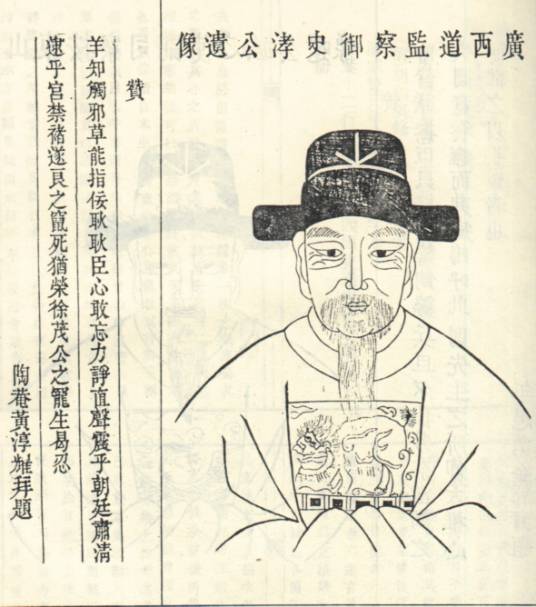 廣西道監察御史浡公遺像
贊
羊知觸邪草能指佞耿耿臣心敢忘力諍直聲震乎朝廷肅清
逮乎宮禁褚遂良之竄死猶榮徐茂公之寵生曷忍
陶菴黃淳耀拜題